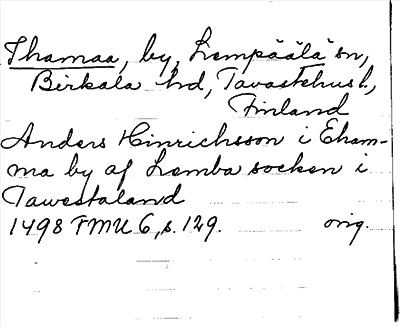 Thamaa, by, Lempäälä sn,
Birkala hd, Tavastehus l.,
Finland
Anders Hinrichsson i Eham-
ma by af Lemba socken i
Tawestaland
1498 FMU 6, s. 129. orig.